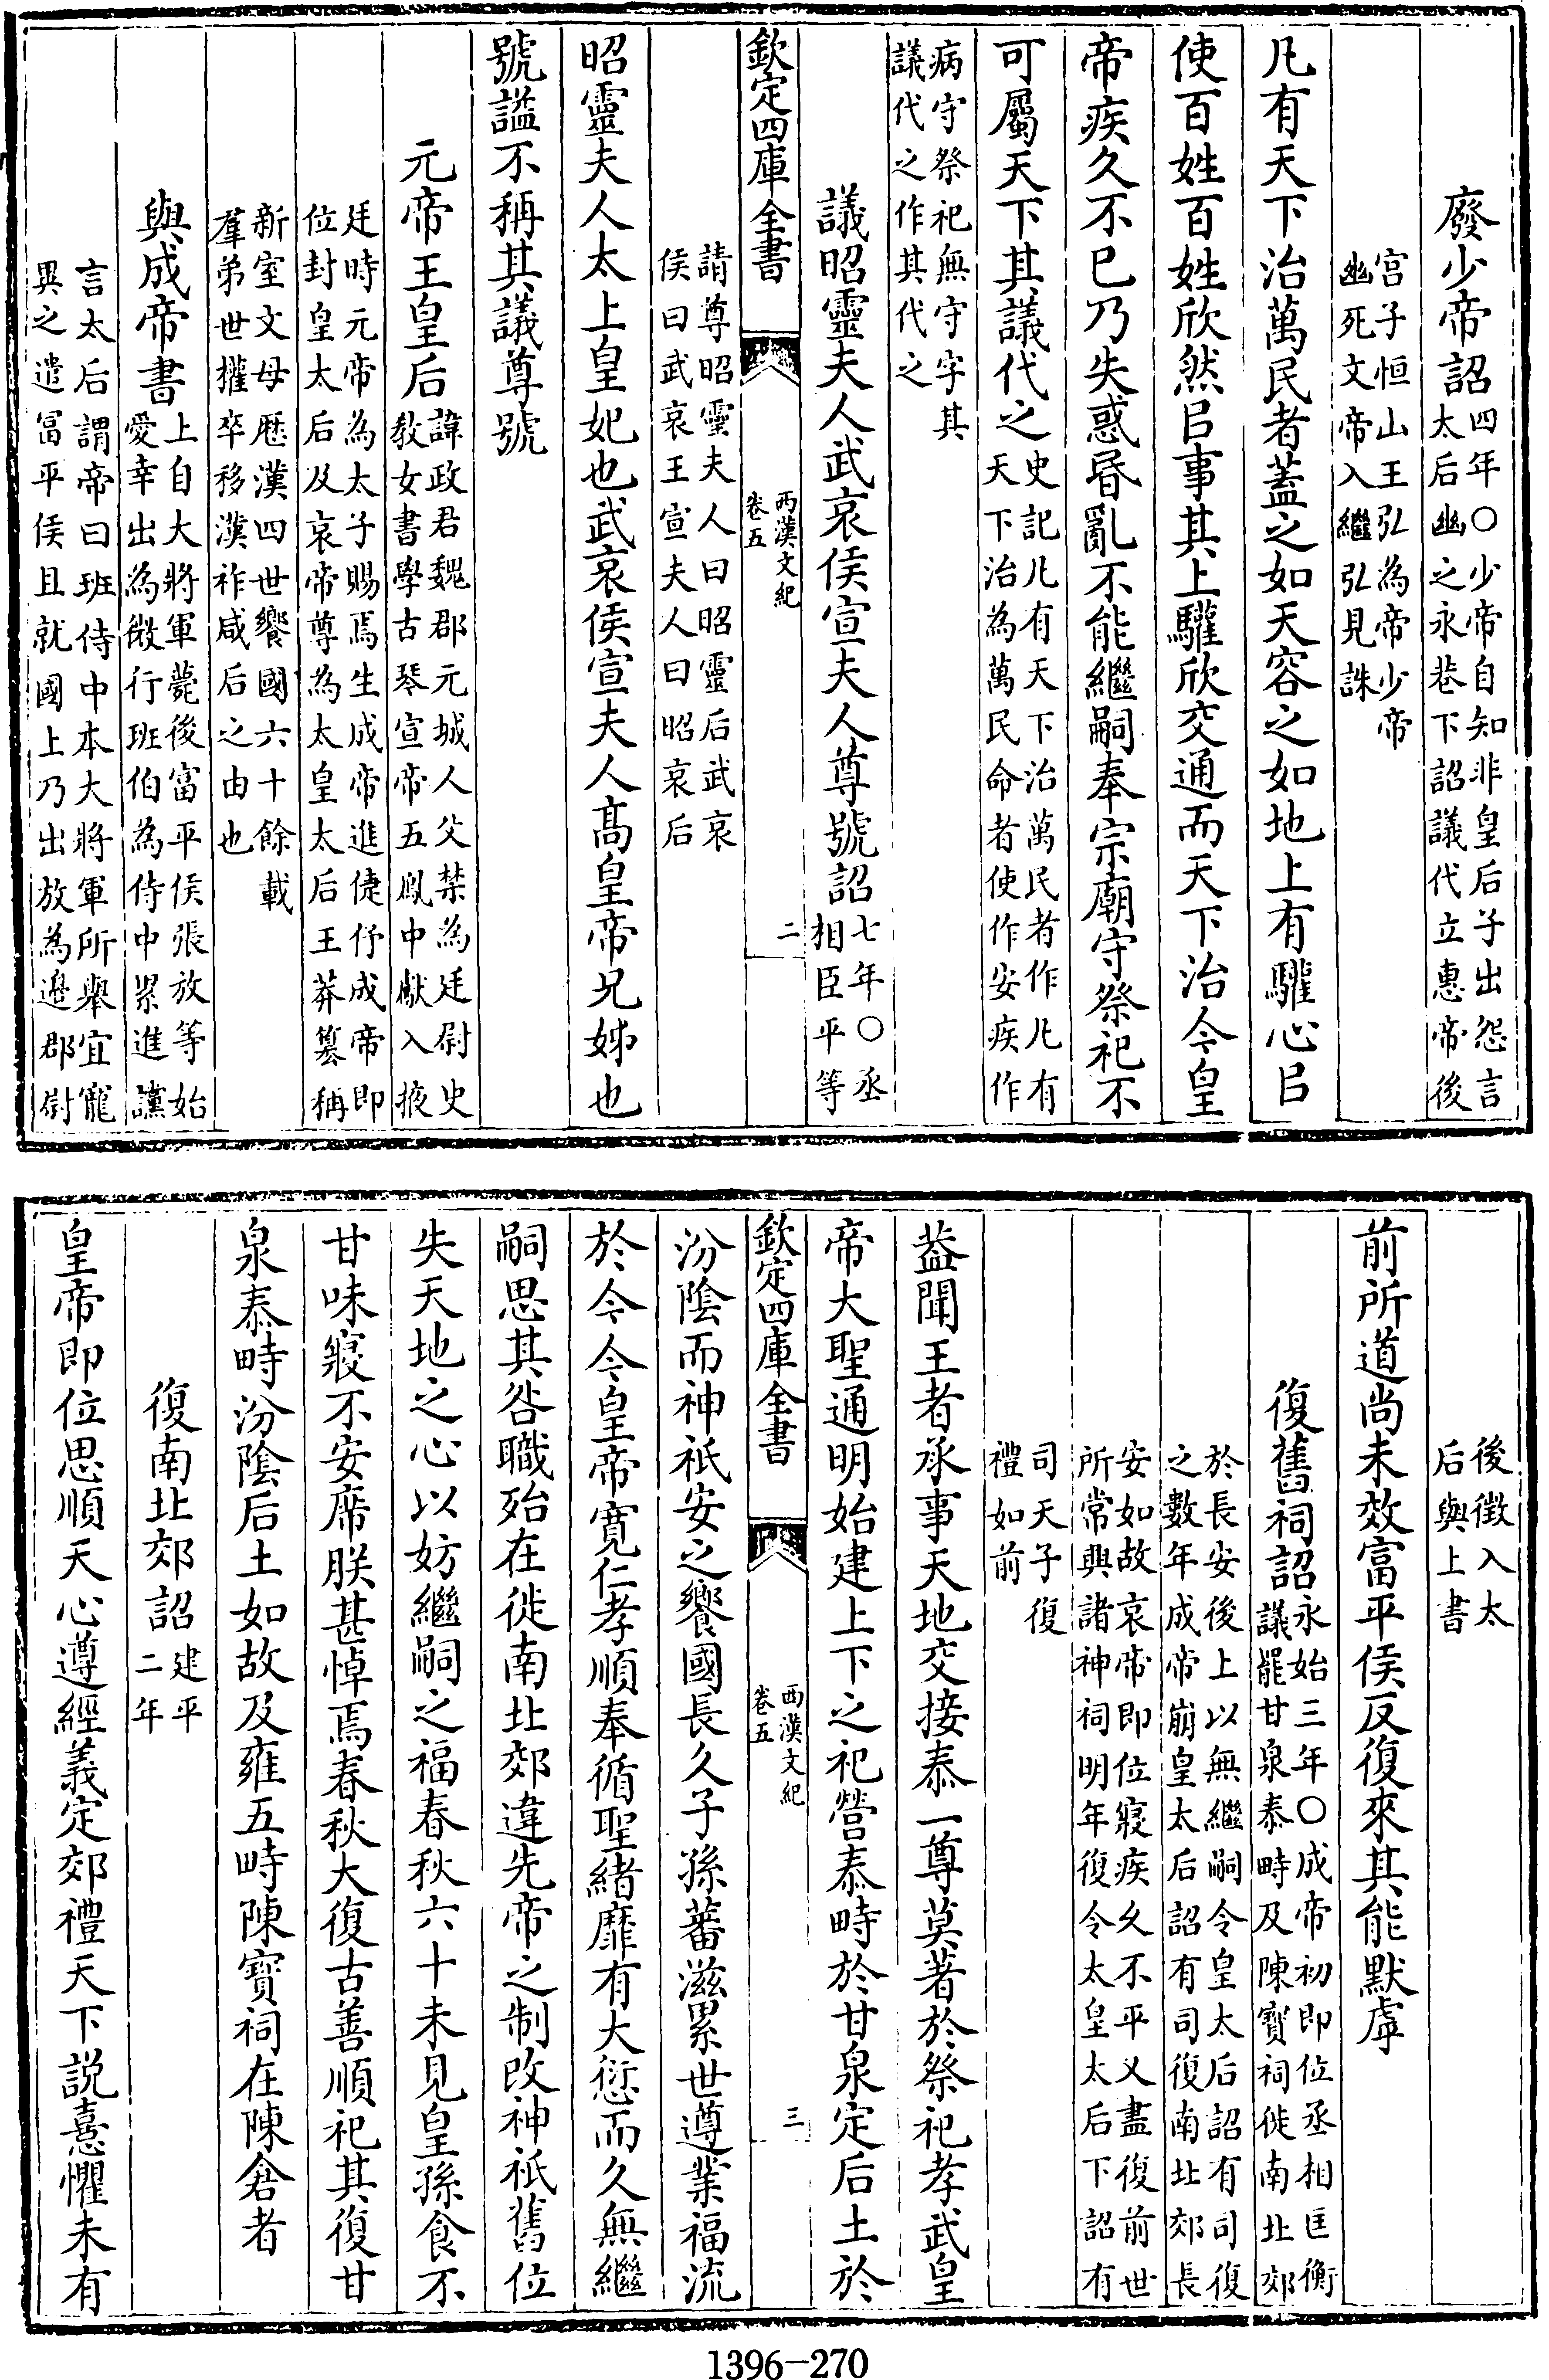 廢少帝詔四年○少帝自知非皇后子出怨言
太后幽之永巷下詔議代立惠帝後
宫子恒山王弘為帝少帝
幽死文帝入繼弘見誅
凡有天下治萬民者蓋之如天容之如地上有驩心㠯
使百姓百姓欣然㠯事其上驩欣交通而天下治今皇
帝疾久不已乃失惑昬亂不能繼嗣奉宗廟守祭祀不
可屬天下其議代之史記凡有天下治萬民者作凡有
天下治為萬民命者使作安疾作
病守祭祀無守字其
議代之作其代之
議昭靈夫人武哀侯宣夫人尊號詔七年○丞
相臣平等
欽定四庫全書
西漢文紀
卷五
二
請尊昭靈夫人曰昭靈后武哀
侯曰武哀王宣夫人曰昭哀后
昭靈夫人太上皇妃也武哀侯宣夫人髙皇帝兄姊也
號謚不稱其議尊號
元帝王皇后諱政君魏郡元城人父禁為廷尉史
教女書學古琴宣帝五鳳中獻入掖
廷時元帝為太子賜焉生成帝進倢伃成帝即
位封皇太后及哀帝尊為太皇太后王莽簒稱
新室文母歴漢四世饗國六十餘載
羣弟世權卒移漢祚咸后之由也
與成帝書上自大將軍薨後富平侯張放等始
愛幸出為微行班伯為侍中累進讜
言太后謂帝曰班侍中本大將軍所舉宜寵
異之遣富平侯且就國上乃出放為邊郡尉
後徴入太
后與上書
前所道尚未效富平侯反復來其能默虖
復舊祠詔永始三年○成帝初即位丞相匡衡
議罷甘泉泰畤及陳寶祠徙南北郊
於長安後上以無繼嗣令皇太后詔有司復
之數年成帝崩皇太后詔有司復南北郊長
安如故哀帝即位寢疾久不平又盡復前世
所常興諸神祠明年復令太皇太后下詔有
司天子復
禮如前
蓋聞王者承事天地交接泰一尊莫著於祭祀孝武皇
帝大聖通明始建上下之祀營泰畤於甘泉定后土於
欽定四庫全書
西漢文紀
卷五
三
汾隂而神祇安之饗國長久子孫蕃滋累世遵業福流
於今今皇帝寛仁孝順奉循聖緒靡有大愆而久無繼
嗣思其咎職殆在徙南北郊違先帝之制改神祇舊位
失天地之心以妨繼嗣之福春秋六十未見皇孫食不
甘味寢不安席朕甚悼焉春秋大復古善順祀其復甘
泉泰畤汾隂后土如故及雍五畤陳寳祠在陳倉者
復南北郊詔建平
二年
皇帝即位思順天心遵經義定郊禮天下説憙懼未有
1396—270